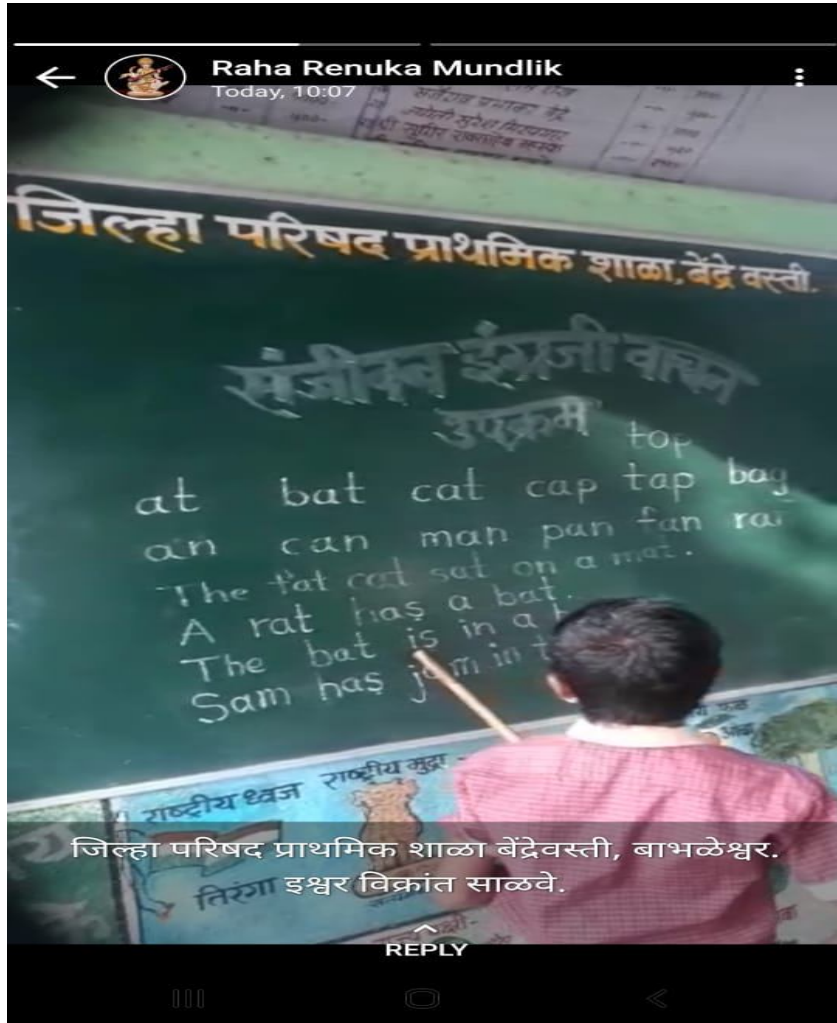 Raha Renuka Mundlik
Today, 10:07
जिल्हा परिषद प्राथमिक शाळा, बेंद्रे वस्ती.
संजीवन इंग्रजी वाचन
उपक्रम
top
at bat cat cap tap bag
an can man pan fan
The fat cat sat on a mat.
A rat has a bat.
The bat is in a
Sam has jam in
राष्ट्रीय ध्वज राष्ट्रीय मुद्रा
तिरंगा
जिल्हा परिषद प्राथमिक शाळा बेंद्रेवस्ती, बाभळेश्वर.
इश्वर विक्रांत साळवे.
REPLY